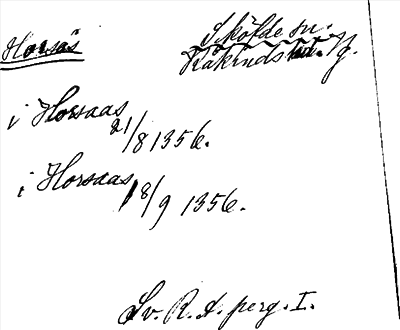 Horsås
Skölde sn.
Kåkinds hd. Vg.
i Horsaas
21/8 1356.
i Horsaas
18/9 1356.
Sv. R. A. perg. I.